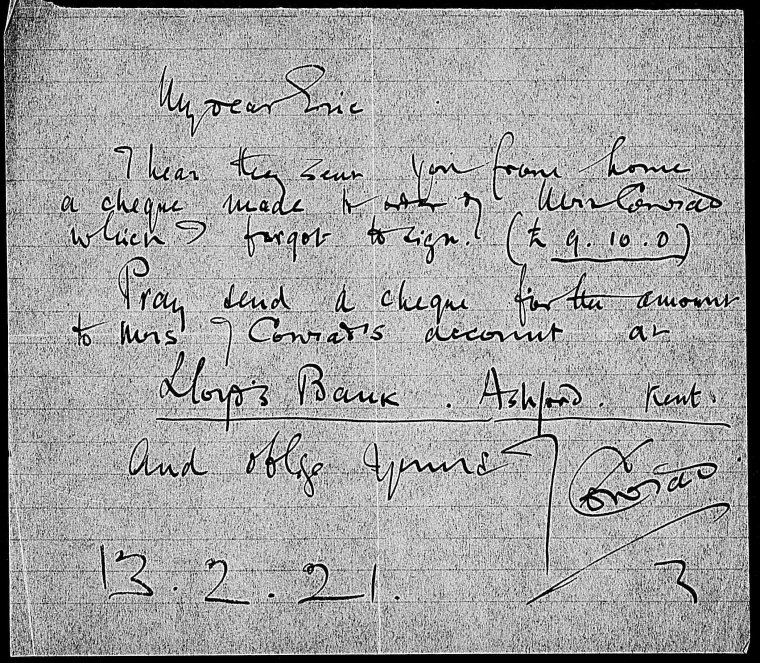 My dear Eric
I hear they sent you from home
a cheque made to order of Mrs Conrad
which I forgot to sign. (£ 9.10.0)
Pray send a cheque for the amount
to Mrs J Conrad's account at
Lloyd's Bank. Ashford. Kent.
And oblige yours J Conrad
13.2.21. 3